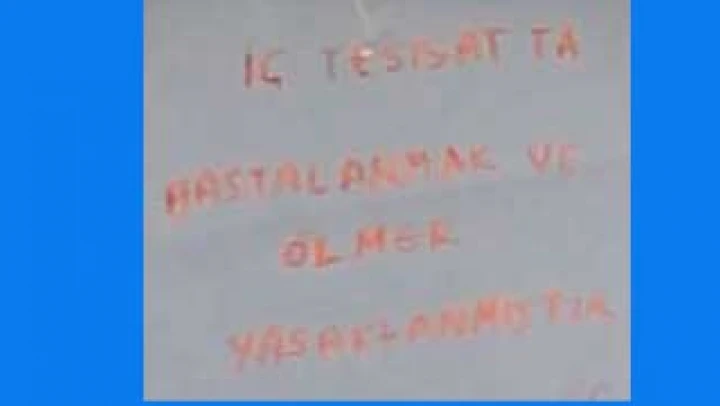 İÇ TESİSAT TA
HASTALANMAK VE
ÖLMEK
YASAKLANMIŞTIR